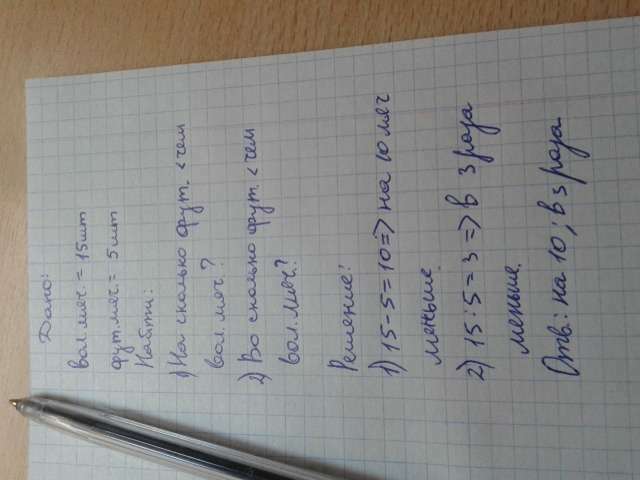 Дано:
вол. мяч. = 15 шт
фут. мяч. = 5 шт
Найти:
1) На сколько фут. < чем
вол. мяч.?
2) Во сколько фут. < чем
вол. мяч?
Решение:
1) 15-5=10=> на 10 мяч
меньше.
2) 15:5=3=> в 3 раза
меньше.
Отв: на 10; в 3 раза